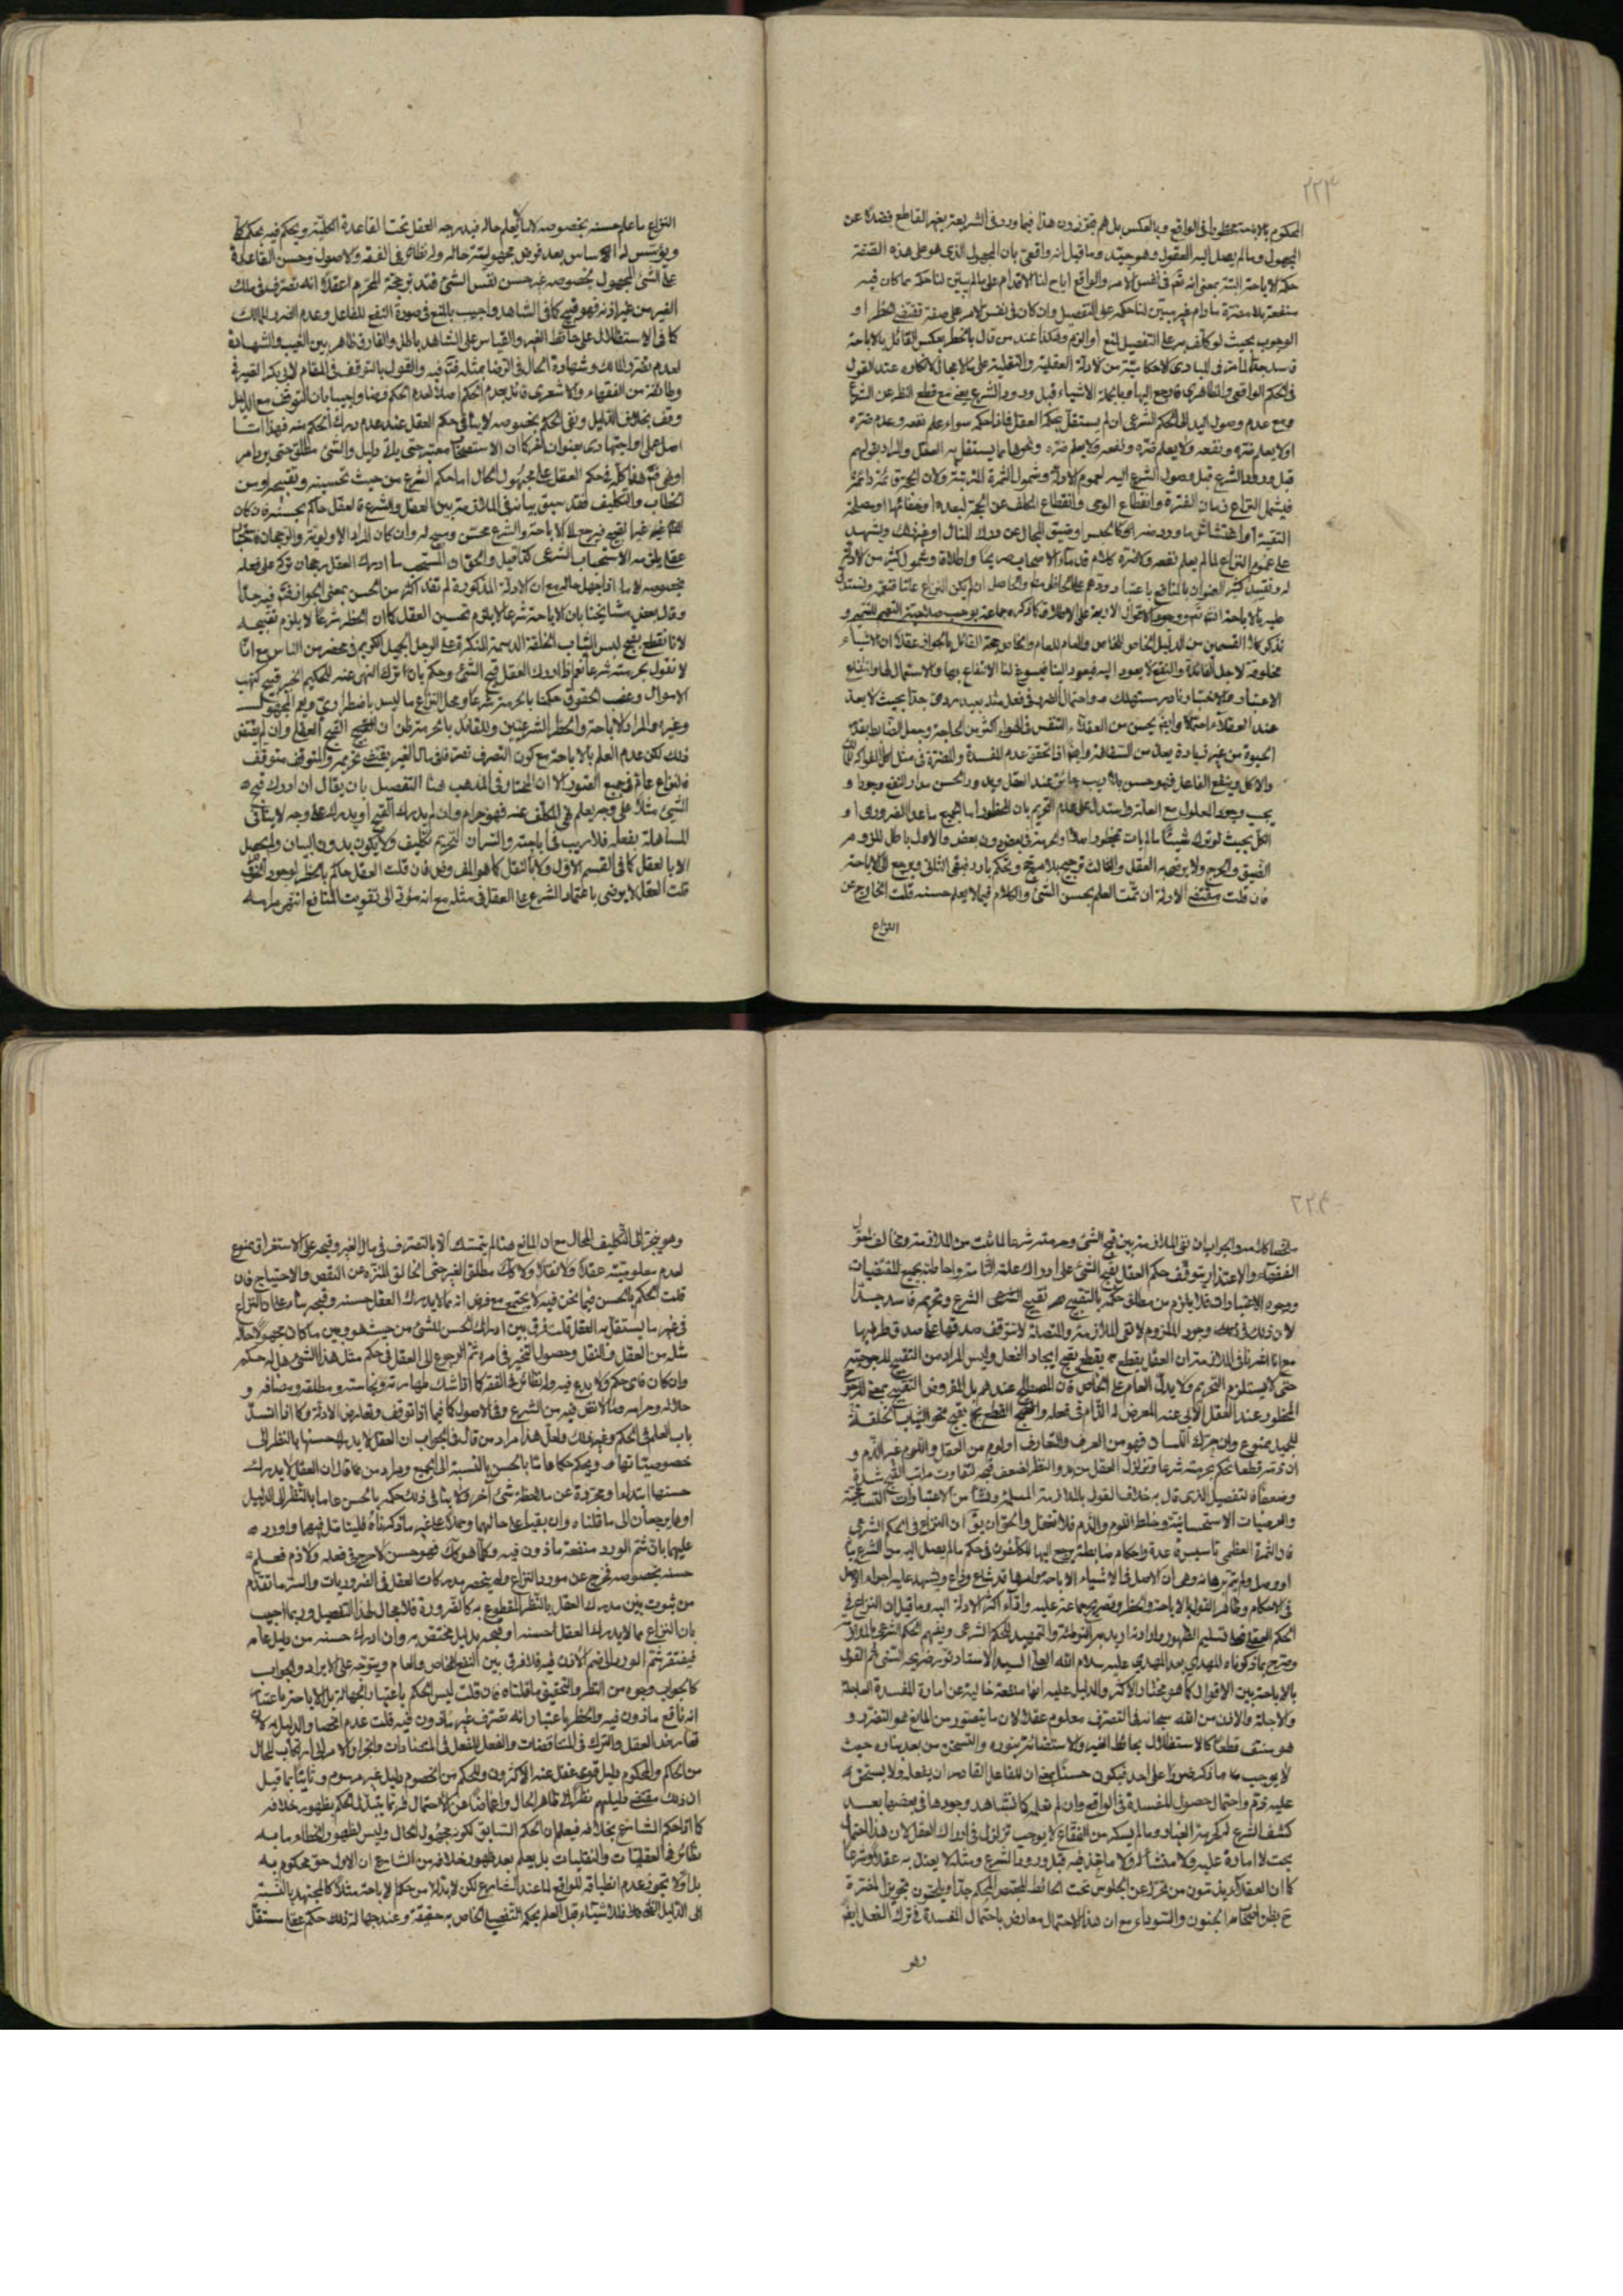 ٢٢٣
المحكوم بالاباحة محظورا في الواقع وبالعكس بل هم يجوزون هذا فيما ورد في الشريعة بغير القاطع فضلا عن
المجهول وما لم يصل اليه العقول وهو جيد وما قيل انه واقعي بان المجهول الذي هو على هذه الصفة
حكمه الاباحة البتة بمعنى انه تم في نفس الامر والواقع اباح لنا الاقدام على ما لم يبين لنا حكمه مما كان فيه
منفعة بلا مضرة ما دام غير مبين لنا حكمه على التفصيل وان كان في نفس الامر على صفة تقتضي الحظر او
الوجوب بحيث لو كلف به على التفصيل لمنع او الزم وهكذا عند من قال بالحظر بعكس القائل بالاباحة
فاسد جدا لما مر في المبادي الاحكامية من الادلة العقلية والنقلية على
في الحكم الواقعي والظاهري فارجع اليها وبالجملة الاشياء قبل ورود الشرع يعني مع قطع النظر عن الشرع
ومع عدم وصول اليد الى الحكم الشرعي ان لم يستقل بحكمه العقل فما ذا حكمه سواء علم نفعه وعدم ضره
او لا يعلم ضره ونفعه ولا يعلم ضره ونفعه ولا يعلم ضره ونحوها مما يستقل به العقل والمراد بقولهم
قبل ورود الشرع قبل وصول الشرع اليه لعموم الادلة وشمول الثمرة المترتبة
فيشمل النزاع زمان الفترة وانقطاع الوحي وانقطاع المكلف عن الحجة لبعده او خفائها او مصلحة
التقية او ما ورد منه او كالحبس او ضيق المجال عن درك المنال او غير ذلك ويشهد
على عموم النزاع لما لم يعلم نفعه وضره كلام قدماء الاصحاب صريحا واطلاقا وشمول كثير من الادلة
له وتقييد كثير العنوان بالمنافع باعتبار والحاصل ان لم يكن النزاع عاما فنعمم ونستدل
عليه بالاباحة الاقوال الاربعة على الاطلاق كما ذكره جماعة يوجب صلاحية التعميم للتعميم و
نذكر كلا القسمين من الدليل الخاص للخاص والعام للعام والخاص حجة القائل بالجواز عقلا ان الاشياء
مخلوقة لاجل الفائدة والنفع لا يعود اليه فيعود الينا فيسوغ لنا الانتفاع بها والاستعمال لها وانتفاع
الاعتبار والاختبار نادر مستهلك واحتمال الضرر في فعل مثله بعيد مردود جدا بحيث لا يعد
عند العقلاء احتمالا وايض يحسن من العقلاء التنفس في الهواء اكثر من الحاجة وجعل الضابط بقدر
الحيوة من غير زيادة يعد من السفاهة وايضا اذا تحقق عدم المفسدة والمضرة في مثل اكل الفواكه
والاكل وينفع الفاعل فهو حسن بلا ريب جائز عند العقل ويدور الحسن مدار النفع وجودا و
يجب وجود المعلول مع العلة واستدل على عدم التحريم بان المحظور اما جميع ما عدا الضروري او
الكل بحيث لو ترك شيئا لم يأت بمحظور اصلا او الحرمة في بعض دون بعض والاول باطل للزوم
الضيق والحرج ولا يرضى به العقل والثالث ترجيح بلا مرجح وتحكم بارد فبقي الثاني ويرجع الى الاباحة
فان قلت مقتضى الادلة ان تمت العلم بحسن الشيء والكلام فيما لا يعلم حسنه قلت الخارج عن
النزاع
النزاع ما علم حسنه بخصوصه لا ما يعلم حاله فيدرجه العقل تحت القاعدة الكلية ويحكم فيه بحكم كلي
ويؤسس له الاساس بعد فرض مجهولية حاله وله نظائر في الفقه والاصول وحسن القاعدة
على الشيء المجهول بخصوصه غير حسن نفس الشيء فتدبر حجة المحرم اعتقادا انه تصرف في ملك
الغير من غير اذنه فهو قبيح كما في الشاهد واجيب بالمنع في صورة النفع للفاعل وعدم الضرر للمالك
كما في الاستظلال على حائط الغير والقياس على الشاهد باطل والفارق ظاهر بين الغيب والشهادة
لعدم تضرر المالك وشهادة الحال في الرضا بمثله فتدبر فيه والقول بالتوقف في المقام لابي بكر الصيرفي
وطائفة من الفقهاء والاشعري قائل بعدم الحكم اصلا لعدم الحكم فرضا واجيب بان التوقف مع الدليل
وقف بخلاف الدليل ونفي الحكم بخصوصه لا ينافي حكم العقل عند عدم درك الحكم منه فهذا اثبات
اصل عملي واجتهادي بعنوان اخر كما ان الاستصحاب معتبر حتى يأتي دليل والشيء مطلق حتى يرد امر
او نهي فتم هذا كله في حكم العقل على مجهول الحال اما حكم الشرع من حيث تحسينه وتقبيحه او من
الخطاب والتكليف فقد سبق بيانه في الملازمة بين العقل والشرع فالعقل حاكم بحسنه فان كان
غير القبيح فيرجع الى الاباحة والشرع محسن ومبيح له وان كان المراد الاولوية والرجحان
عقلا يلزمه الاستحباب الشرعي كذا قيل والحق ان المستحب ما ادرك العقل رجحان تركه على فعله
بخصوصه لا ما اذا جهل حاله مع ان الادلة المذكورة لم تفد اكثر من الحسن بمعنى الجواز فتدبر فيه جدا
وقال بعض مشايخنا بان الاباحة شرعا لا يلزم تحسين العقل كما ان الحظر شرعا لا يلزم تقبيحه
لانا نقطع بقبح لبس الثياب الخلقة الدسمة المنكرة على الرجل الجميل الكريم في محضر من الناس مع انا
لا نقول بحرمته شرعا نعم اذا ادرك العقل قبح الشيء وحكم بان اترك النهي عنه للحكيم الخبير قبيح كنهب
الاموال وغصب الحقوق حكمنا بالحرمة شرعا ومحل النزاع ما ليس باضطراري ويعم المجهول
وغيره والمراد الاباحة والحظر الشرعيين وللقائل بالحرمة ظن ان القبح القبح العقلي وان لم يقتض
ذلك لكن عدم العلم بالاباحة مع كون التصرف تصرفا في مال الغير يقتضي تحريمه والمتوقف متوقف
فالنزاع عام في جميع الصور الا ان المختار في المذهب هنا التفصيل بان يقال ان ادرك قبح
الشيء مثلا على وجه يعلم نهي المكلف عنه فهو حرام وان لم يدرك القبح او يدركه على وجه لا ينافي
المساهلة بفعله فلا ريب في اباحته والسر ان التحريم تكليف ولا يكون بدون البيان ولم يحصل
الا بالعقل كما في القسم الاول ولا بالنقل كما هو المفروض فان قلت العقل حاكم بالحظر لوجود التصرف
قلت العقل لا يرضى باعتماد الشرع على العقل في مثله مع انه مؤد الى تفويت المنافع انتهى مرامه
٢٢٤
ملخصا كلامه والجواب ان نفي الملازمة بين قبح الشيء وحرمته شرعا لما ثبت من الملازمة ومخالف لقول
الفقهاء والاعتذار بتوقف حكم العقل بقبح الشيء على ادراك علته التامة واحاطته بجميع المقتضيات
ووجوه الاعتبارات فلا يلزم من مطلق حكمه بالتقبيح تقبيح الشرعي الشرع وتحريمه فاسد جدا
لان ذلك في وجود الملزوم لا نفي الملازمة والمتصلة لا تتوقف صدقها على صدق طرفيها
مع انا اشرنا في الملازمة ان العقل يقطع بقبح ايجاد الفعل وليس المراد من التقبيح المرجوحية
حتى لا يستلزم التحريم ولا يدل العام على الخاص فان المصطلح عندهم بل المفروض التقبيح بمعنى
المحظور عند العقل الآبي عنه المعرض له الذام في فعله والقطع بقبح نحو الثياب الخلقة
للجميل ممنوع وان جرت اللسان فهو من العرف والتعارف او لوم من العقل واللوم غير الذم و
ان ذمته قطعا نحكم بحرمته شرعا وتزلزل العقل من بدو النظر لضعف قبحه لتفاوت مراتب القبح شدة
وضعفا فالتفصيل الذي قال به خلاف القول بالملازمة المسلمة ونشأ من الاعتبارات
والعرضيات الاستحسانية وخلط اللوم والذم فلا تغفل والحق ان يق ان النزاع في الحكم الشرعي
فان الثمرة العظمى تأسيس قاعدة واحكام ضابطة يرجع اليها المكلفون في حكم ما لم يصل اليه من الشرع بيان
او وصل ولم يتم برهانه وهي ان الاصل في الاشياء الاباحة وامرها قد شاع وذاع ويشهد عليه اجراء الاصل
في الاحكام وظاهر القول بالاباحة والحظر وتصريح جماعة عليه واقادة اكثر الادلة اليه وما قيل ان النزاع في
الحكم العقلي فبعد تسليم الظهور وارادته اريد به التوطئة والتمهيد للحكم الشرعي ويفهم الحكم الشرعي بالملازمة
وصرح بما ذكرناه المهدي بعد المهدي عليه سلام الله السيد الاستاد نور ضريحه السني ثم القول
بالاباحة بين الاقوال كما هو مختار الاكثر والدليل عليه انها منفعة خالية عن امارة المفسدة العاجلة
والآجلة والاذن من الله سبحانه في التصرف معلوم عقلا لان ما يتصور من المانع هو التضرر و
هو منتف قطعا كالاستظلال بحائط الغير والاستضائة بنوره والتسخن من بعد بناره حيث
لا يوجب ما ذكر ضررا على احد فيكون حسنا بمعنى ان للفاعل القادر ان يفعله ولا يستحق
عليه ذم واحتمال حصول المفسدة في الواقع وان لم نعلمه كما نشاهد وجودها في بعضها بعد
كشف الشرع كحرمة العنب وما لم يسكر من الفقاع لا يوجب تزلزلا في ادراك العقل لان هذا احتمال
بحت لا امارة عليه ولا منشأ له ولا مأخذ فيه قبل ورود الشرع ومثله لا يعتد به عقلا وشرعا
كما ان العقلاء يذمون من تحرز عن الجلوس تحت الحائط المجصص المحكم جدا ويلحقون تجويز المضرة
ح بظن اصحاب الجنون والسوداء مع ان هذا الاحتمال معارض باحتمال المفسدة في ترك الفعل ايض
وهو
وهو ينجر الى التكليف المحال مع ان المانع هنا لم يتمسك الا بالتصرف في مال الغير وقبحه على الاستغراق ممنوع
لعدم معلوميته عقلا ولا نقلا ولا كل مطلق الغير حتى الخالق المنزه عن النقص والاحتياج فان
قلت الحكم بالحسن فيما نحن فيه لا يجتمع مع فرض انه مما لا يدرك العقل حسنه وقبحه بناء على ان النزاع
في غير ما يستقل به العقل قلت فرق بين ادراك الحسن للشيء من حيث هو وبين ما كان مجهولا حاله
مثله من العقل والنقل وحصول التحير في امره ثم الرجوع الى العقل في حكم مثل هذا الشيء هل له حكم
وان كان فاي حكم ولا بدع فيه وله نظائر في الفقه كما اذا شك طهارته ونجاسته ومطلقه ومضافه و
حلاله وحرامه مما لا نص فيه من الشرع وفي الاصول كما فيما اذا توقف وتعارض الادلة وكما اذا انسد
باب العلم في الحكم وغير ذلك ولعل هذا مراد من قال في الجواب ان العقل لا يدرك حسنها بالنظر الى
خصوصياتها ويحكم حكما عاما بالحسن بالنسبة الى الجميع ومراد من قال ان العقل لا يدرك
حسنها ابتداء ومجردة عن ملاحظة شيء آخر ولا ينافي ذلك حكمه بالحسن عاما بالنظر الى الدليل
او هما يرجعان الى ما قلناه وان بقيا على حالهما وحملا على غير ما ذكرناه فليتأمل فيهما واورد
عليهما بان ثم الورد منفعة مأذون فيه وكلما هو كك فهو حسن لا حرج في فعله ولا ذم فعلم
حسنه بخصوصه فخرج عن مورد النزاع ولم ينحصر مدركات العقل في الضروريات والسر ما تقدم
من ثبوت بين مدرك العقل بالنظر المقطوع به كالضرورة فلا مجال لهذا التفصيل وربما اجيب
بان النزاع مما لا يدرك العقل حسنه او قبحه بدليل مختص به وان ادرك حسنه من دليل عام
فيفتقر شم الورد الى ضم الاذن فيه فلا فرق بين النفع الخاص والعام ويتوجه على الايراد والجواب
كالجواب وجوه من النظر والتحقيق ما قلناه فان قلت ليس الحكم باعتبار الجهالة بل الاباحة باعتبار
انه نافع مأذون فيه والحظر باعتبار انه تصرف غير مأذون فيه قلت عدم انحصار الدليل به
والترك في المتناقضات والفعل للفعل في المتضادات وانجرار الامر الى ارتكاب المحال
من الحاكم والمحكوم دليل قوي غفل عنه الاكثرون والحكم من الخصوم دليل غير مرسوم وثانيا بما قيل
ان ذلك مقتضى دليلهم نظرا الى ظاهر الحال واغماضا عن الاحتمال فربما يتبدل الحكم بظهور خلافه
كما اذا حكم الشارع بخلافه فيعلم ان الحكم السابق لكونه مجهول الحال وليس لظهور الخطاء ما به
نظائر في العقليات والنقليات بل يعلم بعد ظهور خلافه من الشارع ان الاول حق محكوم به
بل اولا تجوز عدم انطباقه للواقع لما عند الشارع لكن لا بد لنا من حكم الاباحة مثلا كالمجتهد بالنسبة
الى الدليل فللاشياء قبل العلم بحكم التفصيل الخاص به حقيقة وعند جهالة ذلك حكم عقلي مستقل